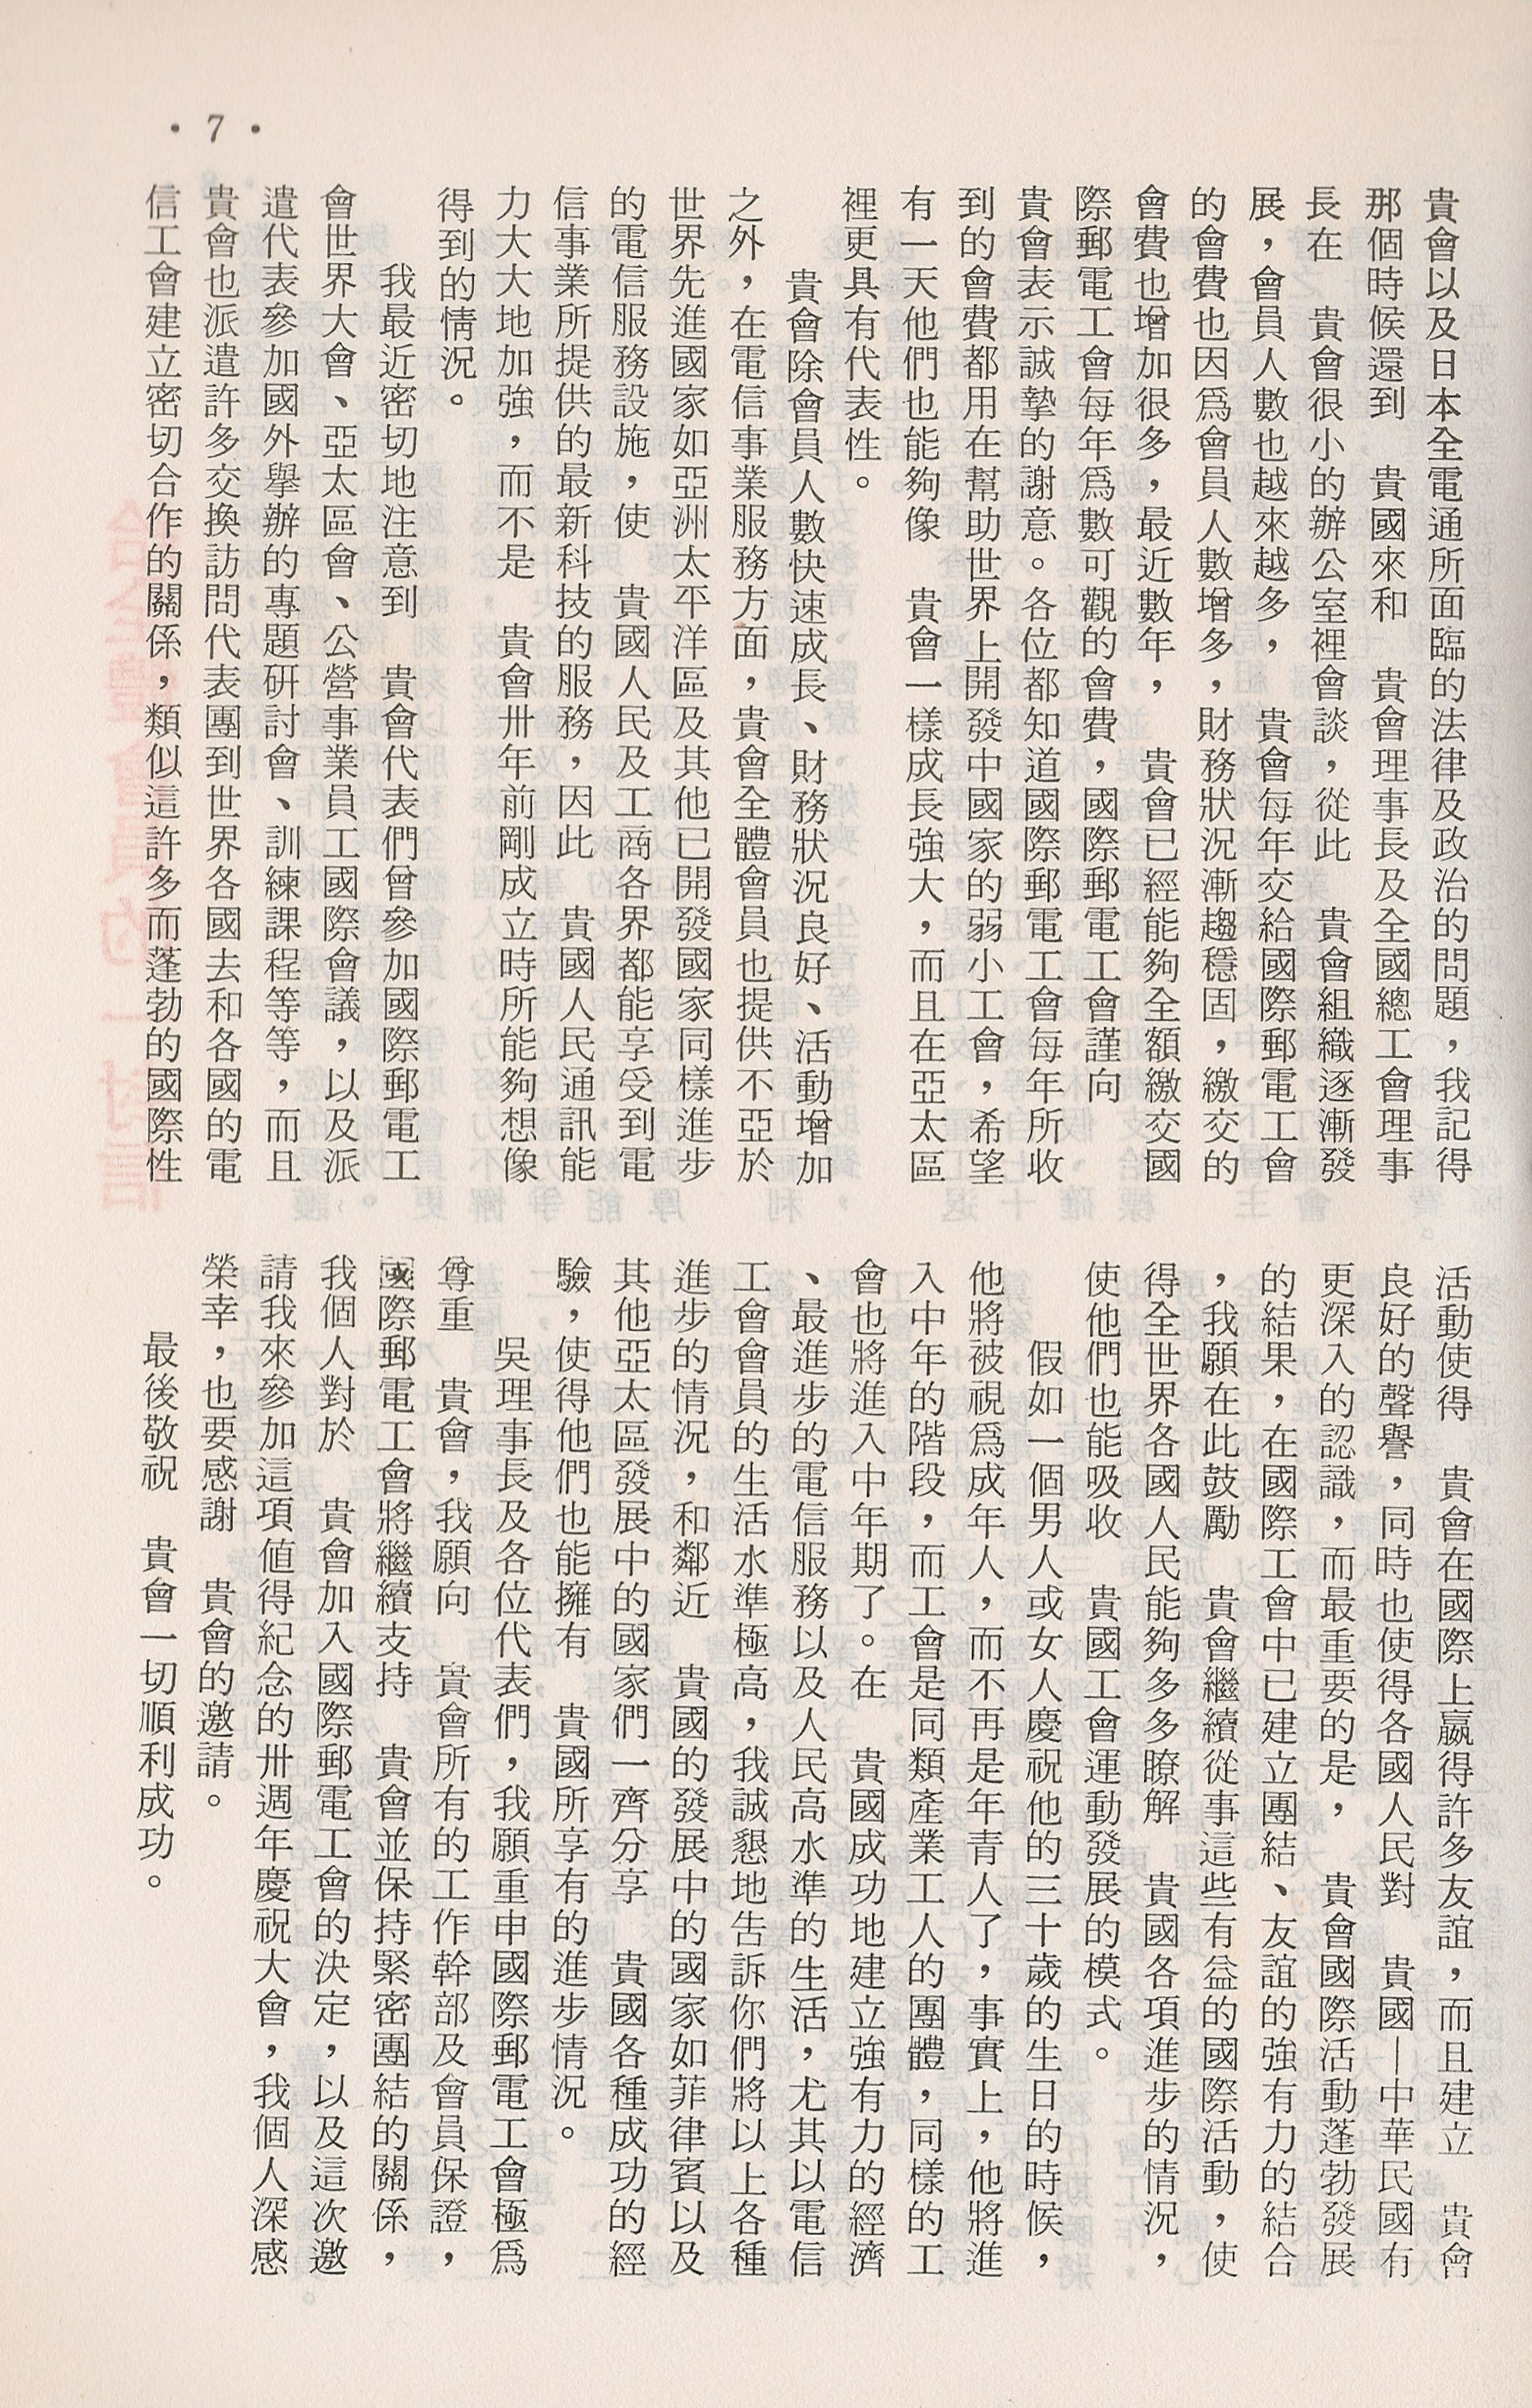 • 7 •
貴會以及日本全電通所面臨的法律及政治的問題，我記得
那個時候還到　貴國來和　貴會理事長及全國總工會理事
長在　貴會很小的辦公室裡會談，從此　貴會組織逐漸發
展，會員人數也越來越多，　貴會每年交給國際郵電工會
的會費也因爲會員人數增多，財務狀況漸趨穩固，繳交的
會費也增加很多，最近數年，　貴會已經能夠全額繳交國
際郵電工會每年爲數可觀的會費，國際郵電工會謹向
貴會表示誠摯的謝意。各位都知道國際郵電工會每年所收
到的會費都用在幫助世界上開發中國家的弱小工會，希望
有一天他們也能夠像　貴會一樣成長強大，而且在亞太區
裡更具有代表性。
　　貴會除會員人數快速成長、財務狀況良好、活動增加
之外，在電信事業服務方面，貴會全體會員也提供不亞於
世界先進國家如亞洲太平洋區及其他已開發國家同樣進步
的電信服務設施，使　貴國人民及工商各界都能享受到電
信事業所提供的最新科技的服務，因此　貴國人民通訊能
力大大地加強，而不是　貴會卅年前剛成立時所能夠想像
得到的情況。
　　我最近密切地注意到　貴會代表們曾參加國際郵電工
會世界大會、亞太區會、公營事業員工國際會議，以及派
遣代表參加國外舉辦的專題研討會、訓練課程等等，而且
貴會也派遣許多交換訪問代表團到世界各國去和各國的電
信工會建立密切合作的關係，類似這許多而蓬勃的國際性
活動使得　貴會在國際上贏得許多友誼，而且建立　貴會
良好的聲譽，同時也使得各國人民對　貴國—中華民國有
更深入的認識，而最重要的是，　貴會國際活動蓬勃發展
的結果，在國際工會中已建立團結、友誼的強有力的結合
，我願在此鼓勵　貴會繼續從事這些有益的國際活動，使
得全世界各國人民能夠多多瞭解　貴國各項進步的情況，
使他們也能吸收　貴國工會運動發展的模式。
　　假如一個男人或女人慶祝他的三十歲的生日的時候，
他將被視爲成年人，而不再是年青人了，事實上，他將進
入中年的階段，而工會是同類產業工人的團體，同樣的工
會也將進入中年期了。在　貴國成功地建立強有力的經濟
、最進步的電信服務以及人民高水準的生活，尤其以電信
工會會員的生活水準極高，我誠懇地告訴你們將以上各種
進步的情況，和鄰近　貴國的發展中的國家如菲律賓以及
其他亞太區發展中的國家們一齊分享　貴國各種成功的經
驗，使得他們也能擁有　貴國所享有的進步情況。
　　吳理事長及各位代表們，我願重申國際郵電工會極爲
尊重　貴會，我願向　貴會所有的工作幹部及會員保證，
國際郵電工會將繼續支持　貴會並保持緊密團結的關係，
我個人對於　貴會加入國際郵電工會的決定，以及這次邀
請我來參加這項值得紀念的卅週年慶祝大會，我個人深感
榮幸，也要感謝　貴會的邀請。
　　最後敬祝　貴會一切順利成功。